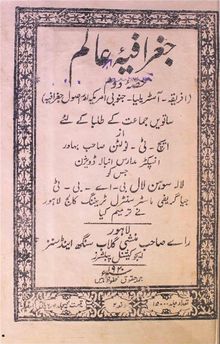 جغرافیۂ عالم
حصہ دوم
(افریقہ - آسٹریلیا - جنوبی امریکہ اور اصول جغرافیہ)
ساتویں جماعت کے طلبا کے لئے
از
ایچ - ٹی - صاحب بہادر
انسپکٹر مدارس انبالہ ڈویژن
جس کو
لالہ سوہن لال بی - اے - بی - ٹی
جیاگریفی ماسٹر سنٹرل ٹریننگ کالج لاہور
نے ترمیم کیا
لاہور
رائے صاحب منشی گلاب سنگھ اینڈ سنز
ایجوکیشنل پبلشرز
۱۹۲۰
جملہ حقوق محفوظ ہیں